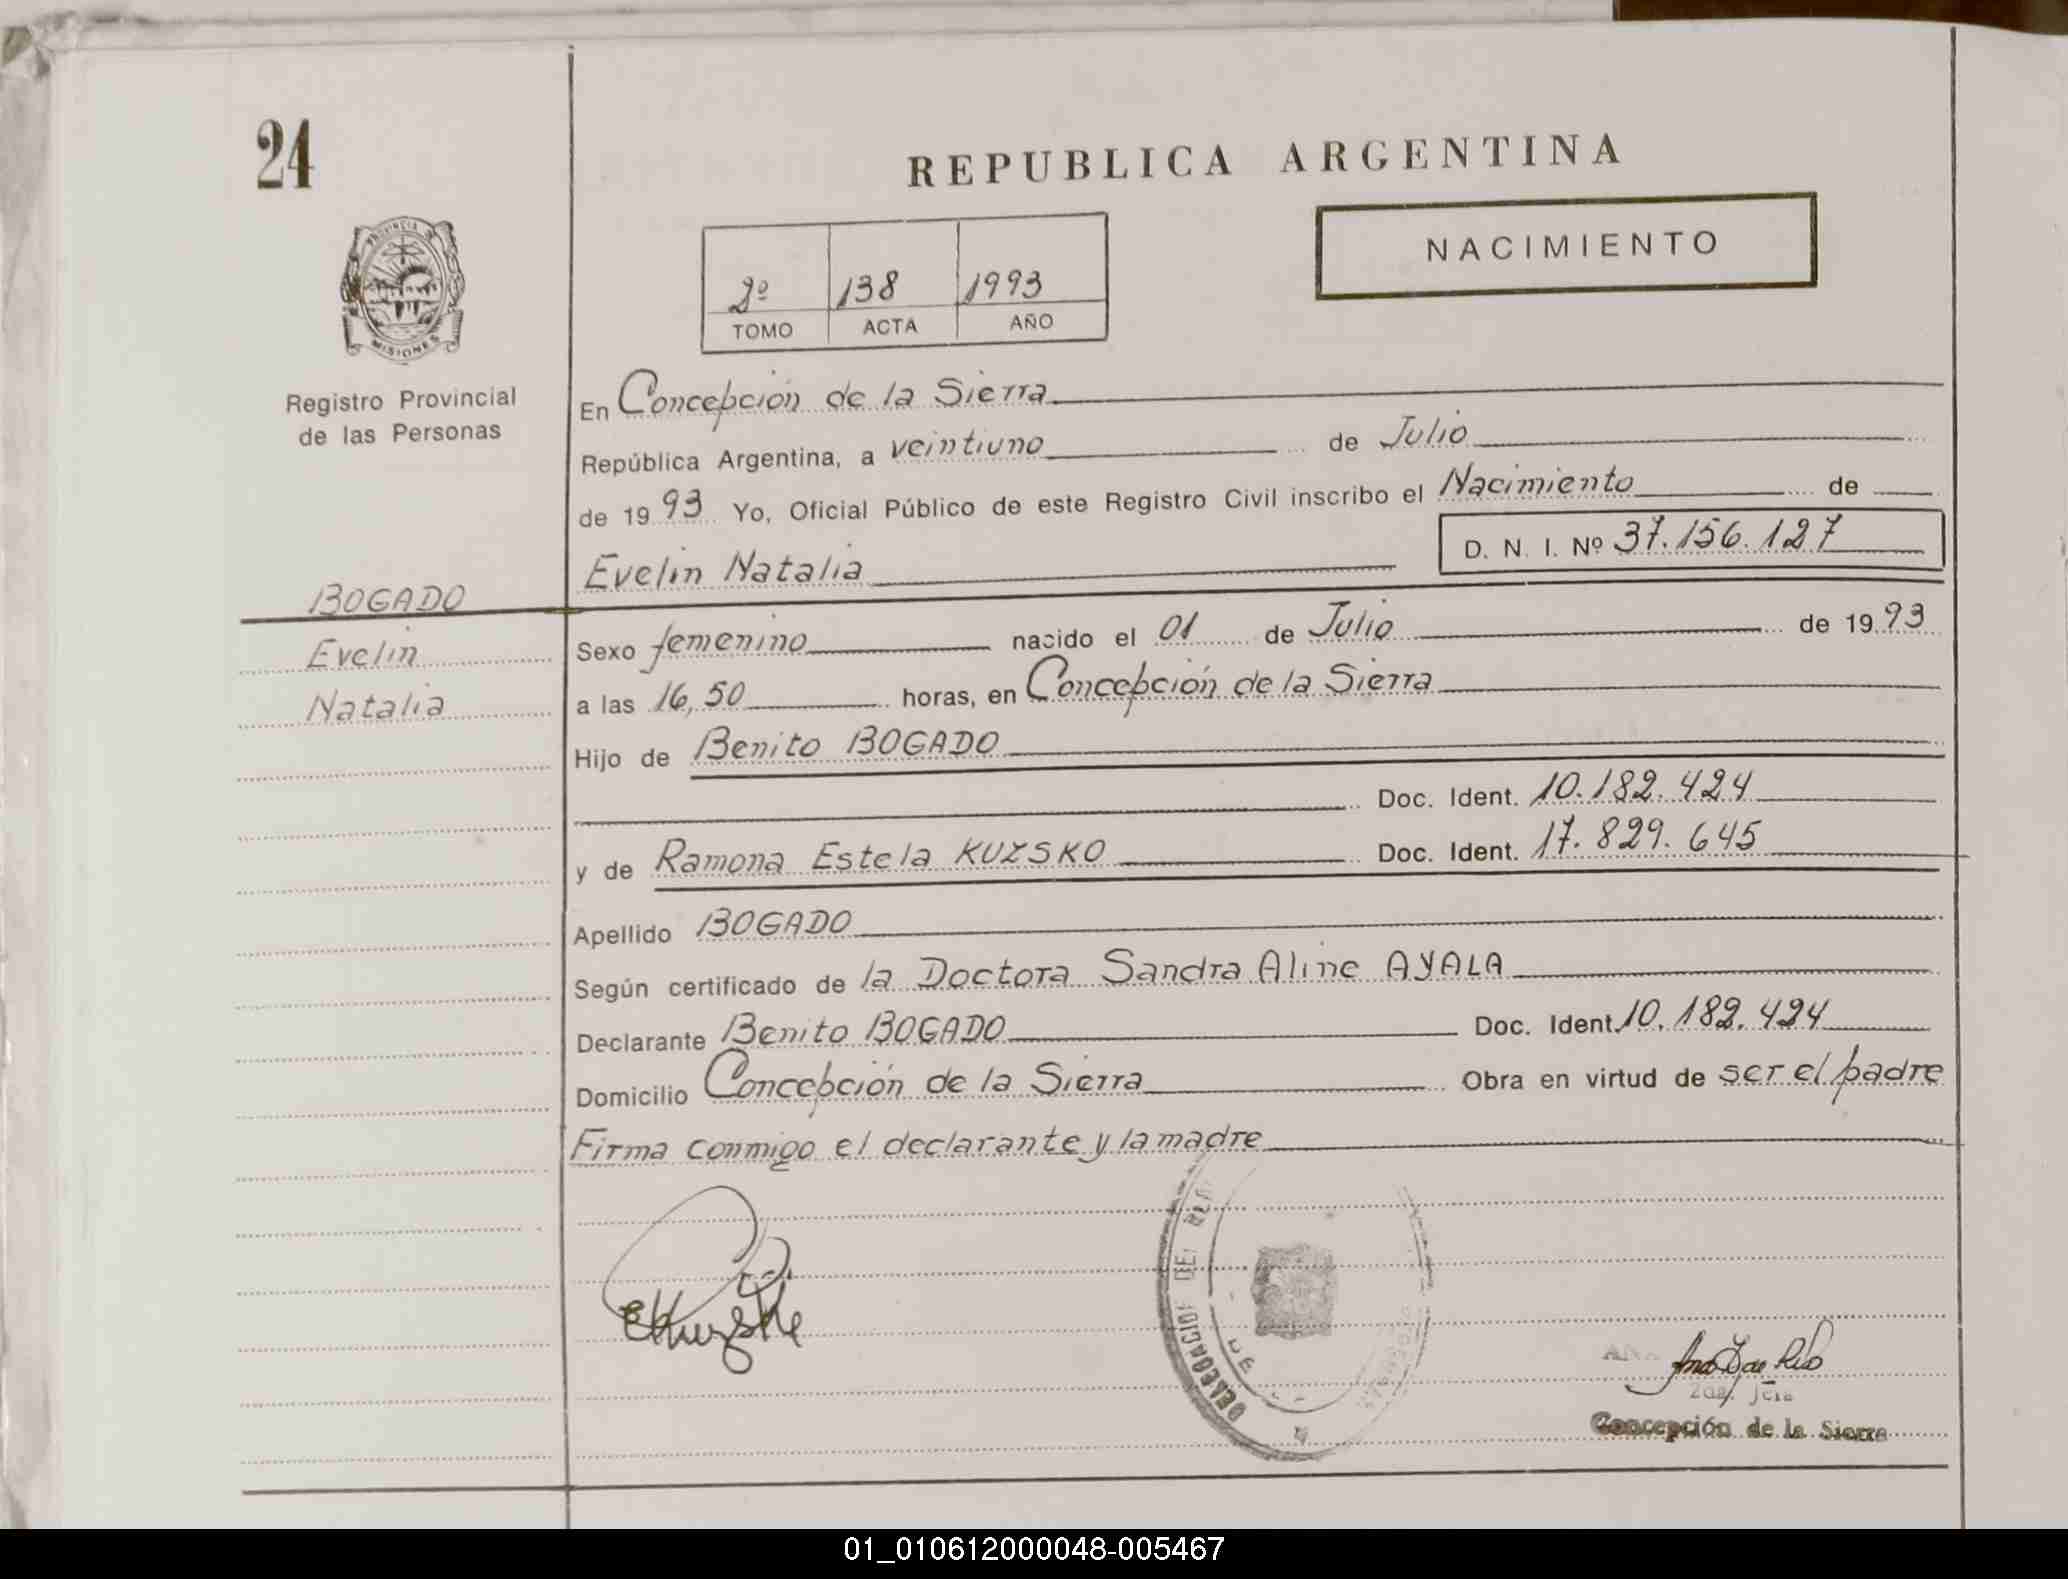 24
REPUBLICA ARGENTINA
NACIMIENTO
2º 138 1993
TOMO ACTA AÑO
PROVINCIA DE
MISIONES
Registro Provincial
de las Personas
En Concepción de la Sierra
República Argentina, a veintiuno de Julio
de 1993 Yo, Oficial Público de este Registro Civil inscribo el Nacimiento de
Evelin Natalia D. N. I. Nº 37.156.127
BOGADO
Evelin
Natalia
Sexo femenino nacido el 01 de Julio de 1993
a las 16,50 horas, en Concepción de la Sierra
Hijo de Benito BOGADO
Doc. Ident. 10.182.424
y de Ramona Estela KUZSKO Doc. Ident. 17.829.645
Apellido BOGADO
Según certificado de la Doctora Sandra Aline AYALA
Declarante Benito BOGADO Doc. Ident. 10.182.424
Domicilio Concepción de la Sierra Obra en virtud de ser el padre
Firma conmigo el declarante y la madre
2da. Jefa
Concepción de la Sierra
01_010612000048-005467